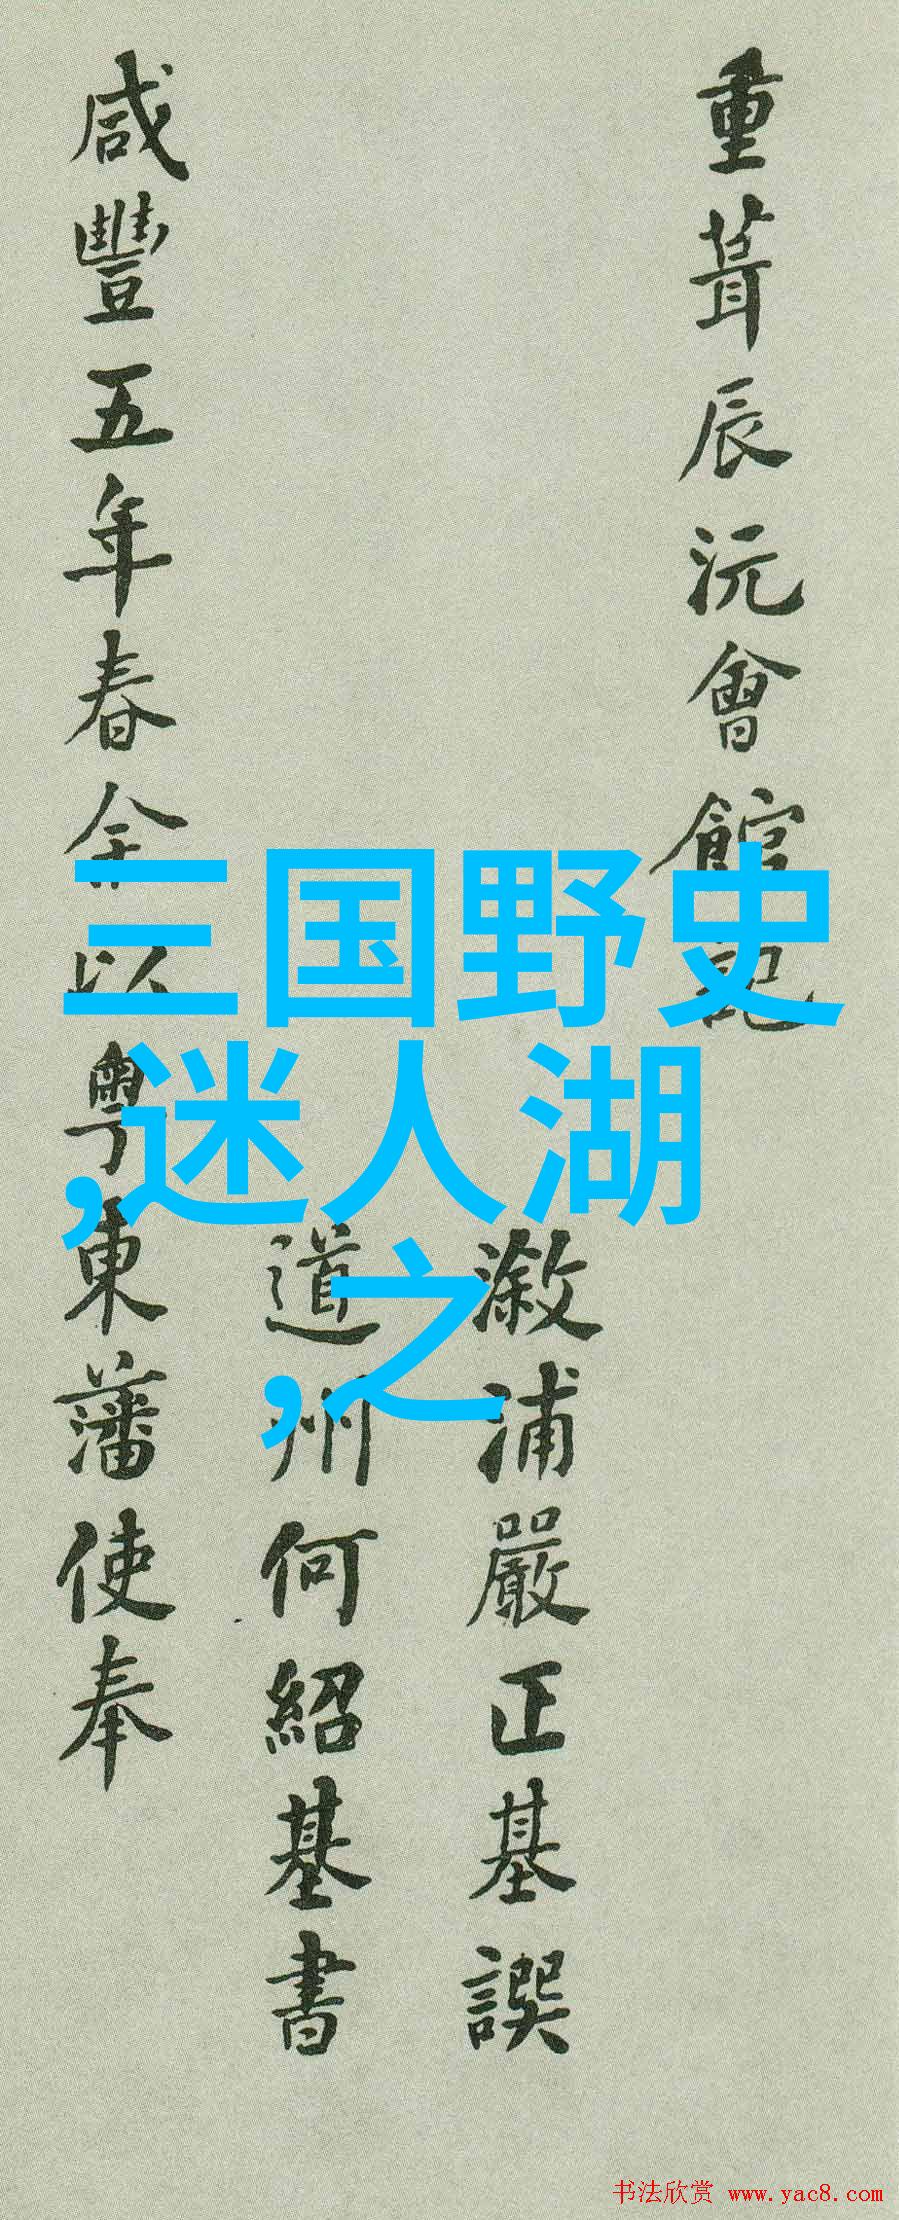 重葺辰沅會館記
溆浦嚴正基譔
道州何紹基書
咸豐五年春余以粵東藩使奉
三国野史
,迷人湖
,之
书法欣赏 www.yac8.com